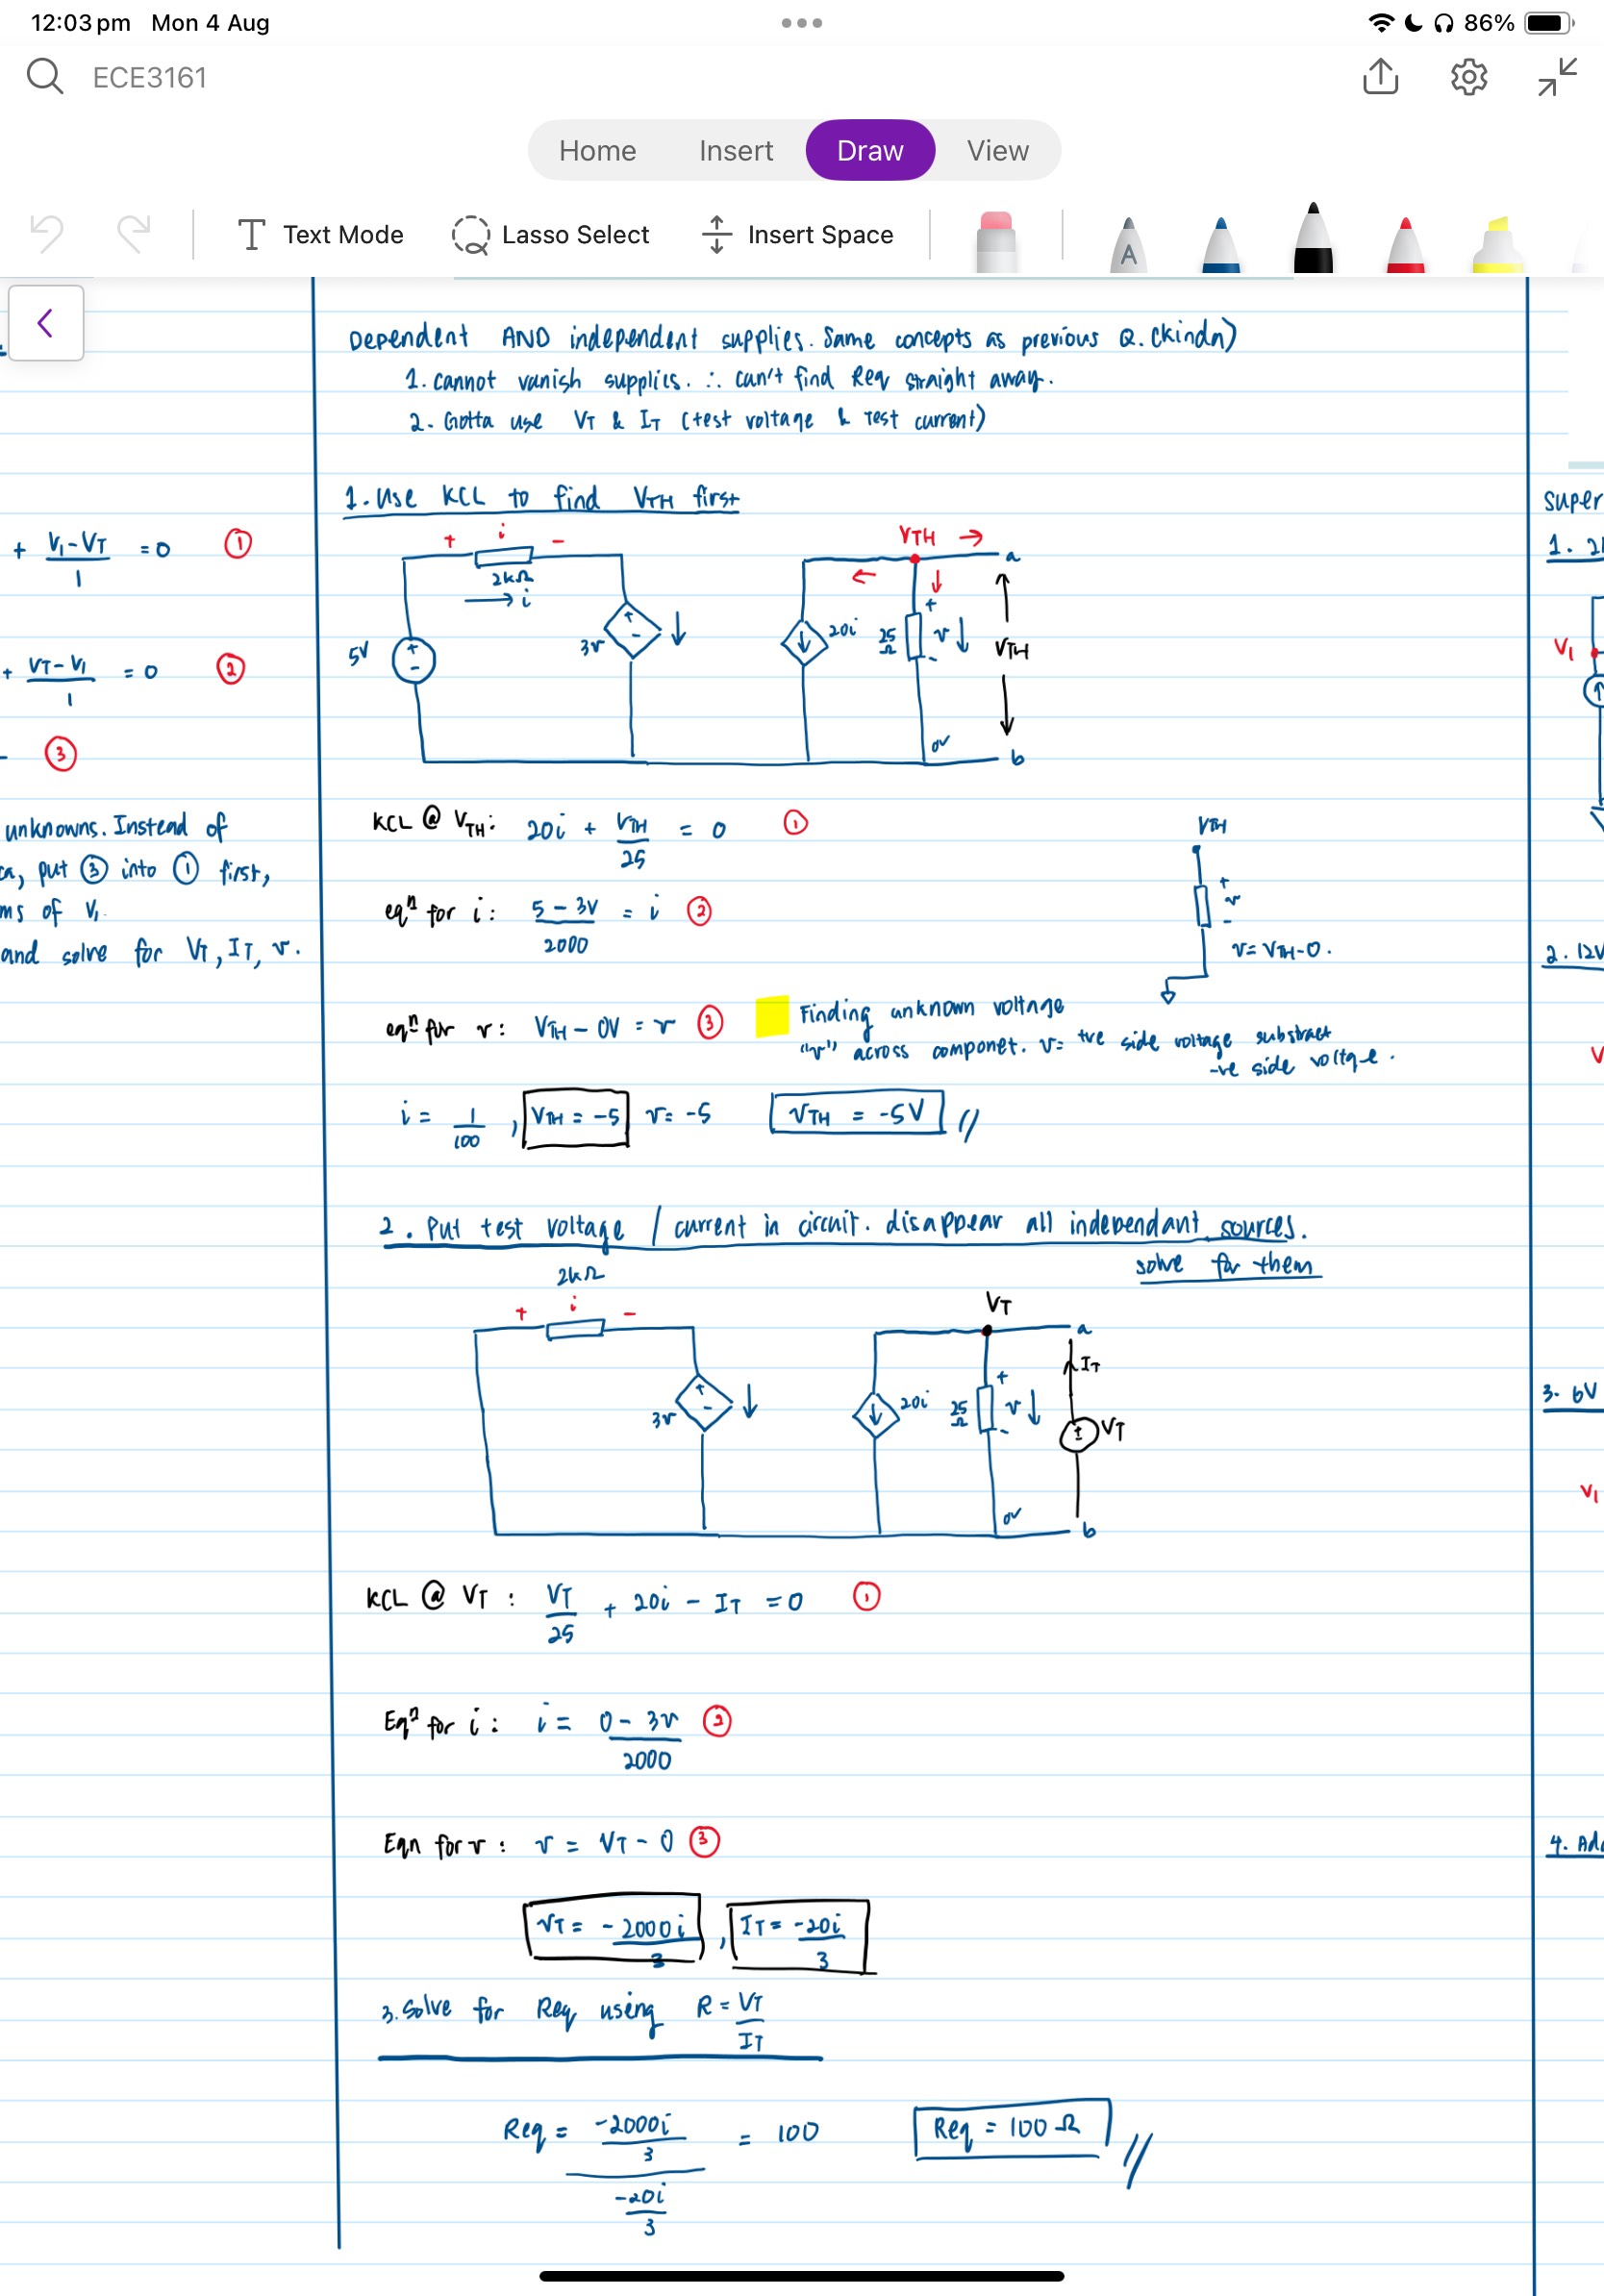 12:03 pm Mon 4 Aug
86%
ECE3161
Home Insert Draw View
Text Mode Lasso Select Insert Space
A
Dependent AND independent supplies. Same concepts as previous Q. (kinda)
1. cannot vanish supplies. ∴ can't find Req straight away.
2. Gotta use VT & IT (test voltage & test current)
1. Use KCL to find VTH first
+ i -
2kΩ
→ i
5V
+
-
3v
+
-
20i
25
Ω
+
v
-
VTH
a
VTH
0V
b
KCL @ VTH: 20i + VTH/25 = 0 ①
eqn for i: 5 - 3V/2000 = i ②
VTH
+
v
-
v = VTH - 0.
eqn for v: VTH - 0V = v ③
Finding unknown voltage
"v" across componet. v = +ve side voltage substract
-ve side voltage.
i = 1/100, VTH = -5 v = -5 VTH = -5V //
2. Put test voltage / current in circuit. disappear all independant sources.
solve for them
2kΩ
+ i -
3v
+
-
20i
25
Ω
+
v
-
VT
a
IT
VT
0V
b
KCL @ VT: VT/25 + 20i - IT = 0 ①
Eqn for i: i = 0 - 3v/2000 ②
Eqn for v: v = VT - 0 ③
VT = -2000i/3, IT = -20i/3
3. Solve for Req using R = VT/IT
Req = -2000i/3 / -20i/3 = 100 Req = 100 Ω //
+ V1 - VT/1 = 0 ①
+ VT - V1/1 = 0 ②
③
unknowns. Instead of
put ③ into ① first,
ms of V1
and solve for VT, IT, v.
super
1.
V1
2. 12V
V
3. 6V
V1
4. Ad